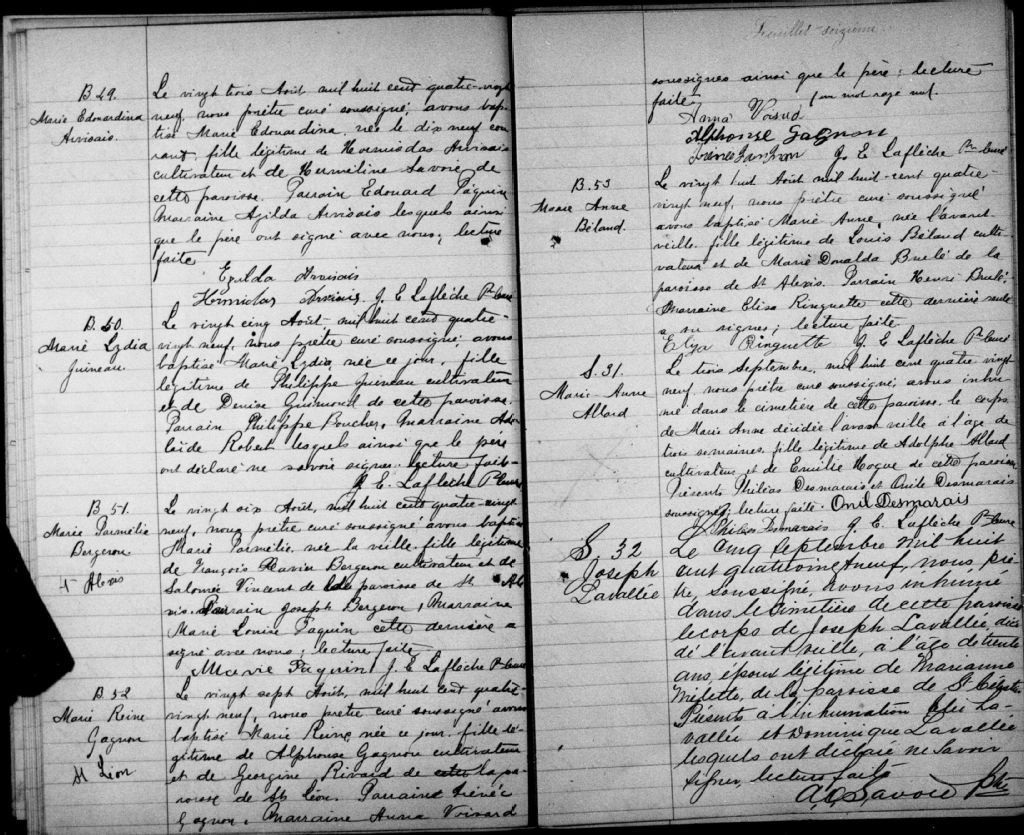 B 49.
Marie Edouardina
Arvisais.
Le vingt trois Août mil huit cent quatre-vingt
neuf, nous prêtre curé soussigné, avons bap-
tisé Marie Edouardina, née le dix neuf cou-
rant, fille légitime de Hormisdas Arvisais
cultivateur et de Herméline Savoie de
cette paroisse. Parrain Edouard Paquin
Marraine Azilda Arvisais lesquels ainsi
que le père ont signé avec nous, lecture
faite
Arvisais
Arvisais J. E. Laflèche Ptre Curé
B. 50.
Marie Lydia
Guineau.
Le vingt cinq Août mil huit cent quatre-
vingt neuf, nous prêtre curé soussigné, avons
baptisé Marie Lydia née ce jour, fille
légitime de Philippe Guineau cultivateur
et de Denise Guimond de cette paroisse.
Parrain Philippe Boucher, Marraine Adé-
laïde Robert lesquels ainsi que le père
ont déclaré ne savoir signer. lecture faite
J. E. Laflèche Ptre Curé
B 51.
Marie Parmélie
Bergeron
St Alexis
Le vingt six Août, mil huit cent quatre-vingt
neuf, nous prêtre curé soussigné avons baptisé
Marie Parmélie née la veille fille légitime
de François Flavien Bergeron cultivateur et de
Salomée Vincent de la paroisse de St Ale-
xis. Parrain Joseph Bergeron, Marraine
Marie Louise Paquin cette dernière a
signé avec nous; lecture faite
Marie Paquin J. E. Laflèche Ptre Curé
B 52
Marie Reine
Gagnon
St Léon
Le vingt sept Août, mil huit cent quatre-
vingt neuf, nous prêtre curé soussigné avons
baptisé Marie Reine née ce jour, fille lé-
gitime de Alphonse Gagnon cultivateur
et de Georgine Rivard de la pa-
roisse de St Léon. Parrain Irénée
Gagnon, Marraine Anna Voisard
Feuillet seizième
soussignés ainsi que le père; lecture
faite. un mot rayé nul.
Anna Voisard
Alphonse Gagnon
J. E. Laflèche Ptre Curé
B. 53
Marie Anne
Béland.
Le vingt huit Août mil huit-cent quatre-
vingt neuf, nous prêtre curé soussigné
avons baptisé Marie Anne, née l'avant
veille, fille légitime de Louis Béland culti-
vateur et de Marie Donalda Brulé de la
paroisse de St Alexis. Parrain Henri Brulé,
Marraine Elisa Ringuette cette dernière seule
a su signer; lecture faite.
Eliza Ringuette J. E. Laflèche Ptre Curé
S. 31.
Marie-Anne
Allard
Le trois Septembre, mil huit cent quatre vingt
neuf nous prêtre curé soussigné, avons inhu-
mé dans le cimetière de cette paroisse, le corps
de Marie Anne décédée l'avant veille à l'âge de
trois semaines, fille légitime de Adolphe Allard
cultivateur et de Emilie Hogue de cette paroisse
Présents Philéas Desmarais et Onile Desmarais
soussignés, lecture faite. Onil Desmarais
Philéas Desmarais J. E. Laflèche Ptre Curé
S. 32
Joseph
Lavallée
Le cinq septembre mil huit
cent quatrevingtneuf, nous, prê-
tre, soussigné, avons inhumé
dans le cimetière de cette paroisse
le corps de Joseph Lavallée, décé-
dé l'avant veille, à l'âge de trente
ans, époux légitime de Marianne
Milette, de la paroisse de
Présents à l'inhumation La-
vallée et Dominique Lavallée
lesquels ont déclaré ne savoir
signer, lecture faite
Savoie Ptre